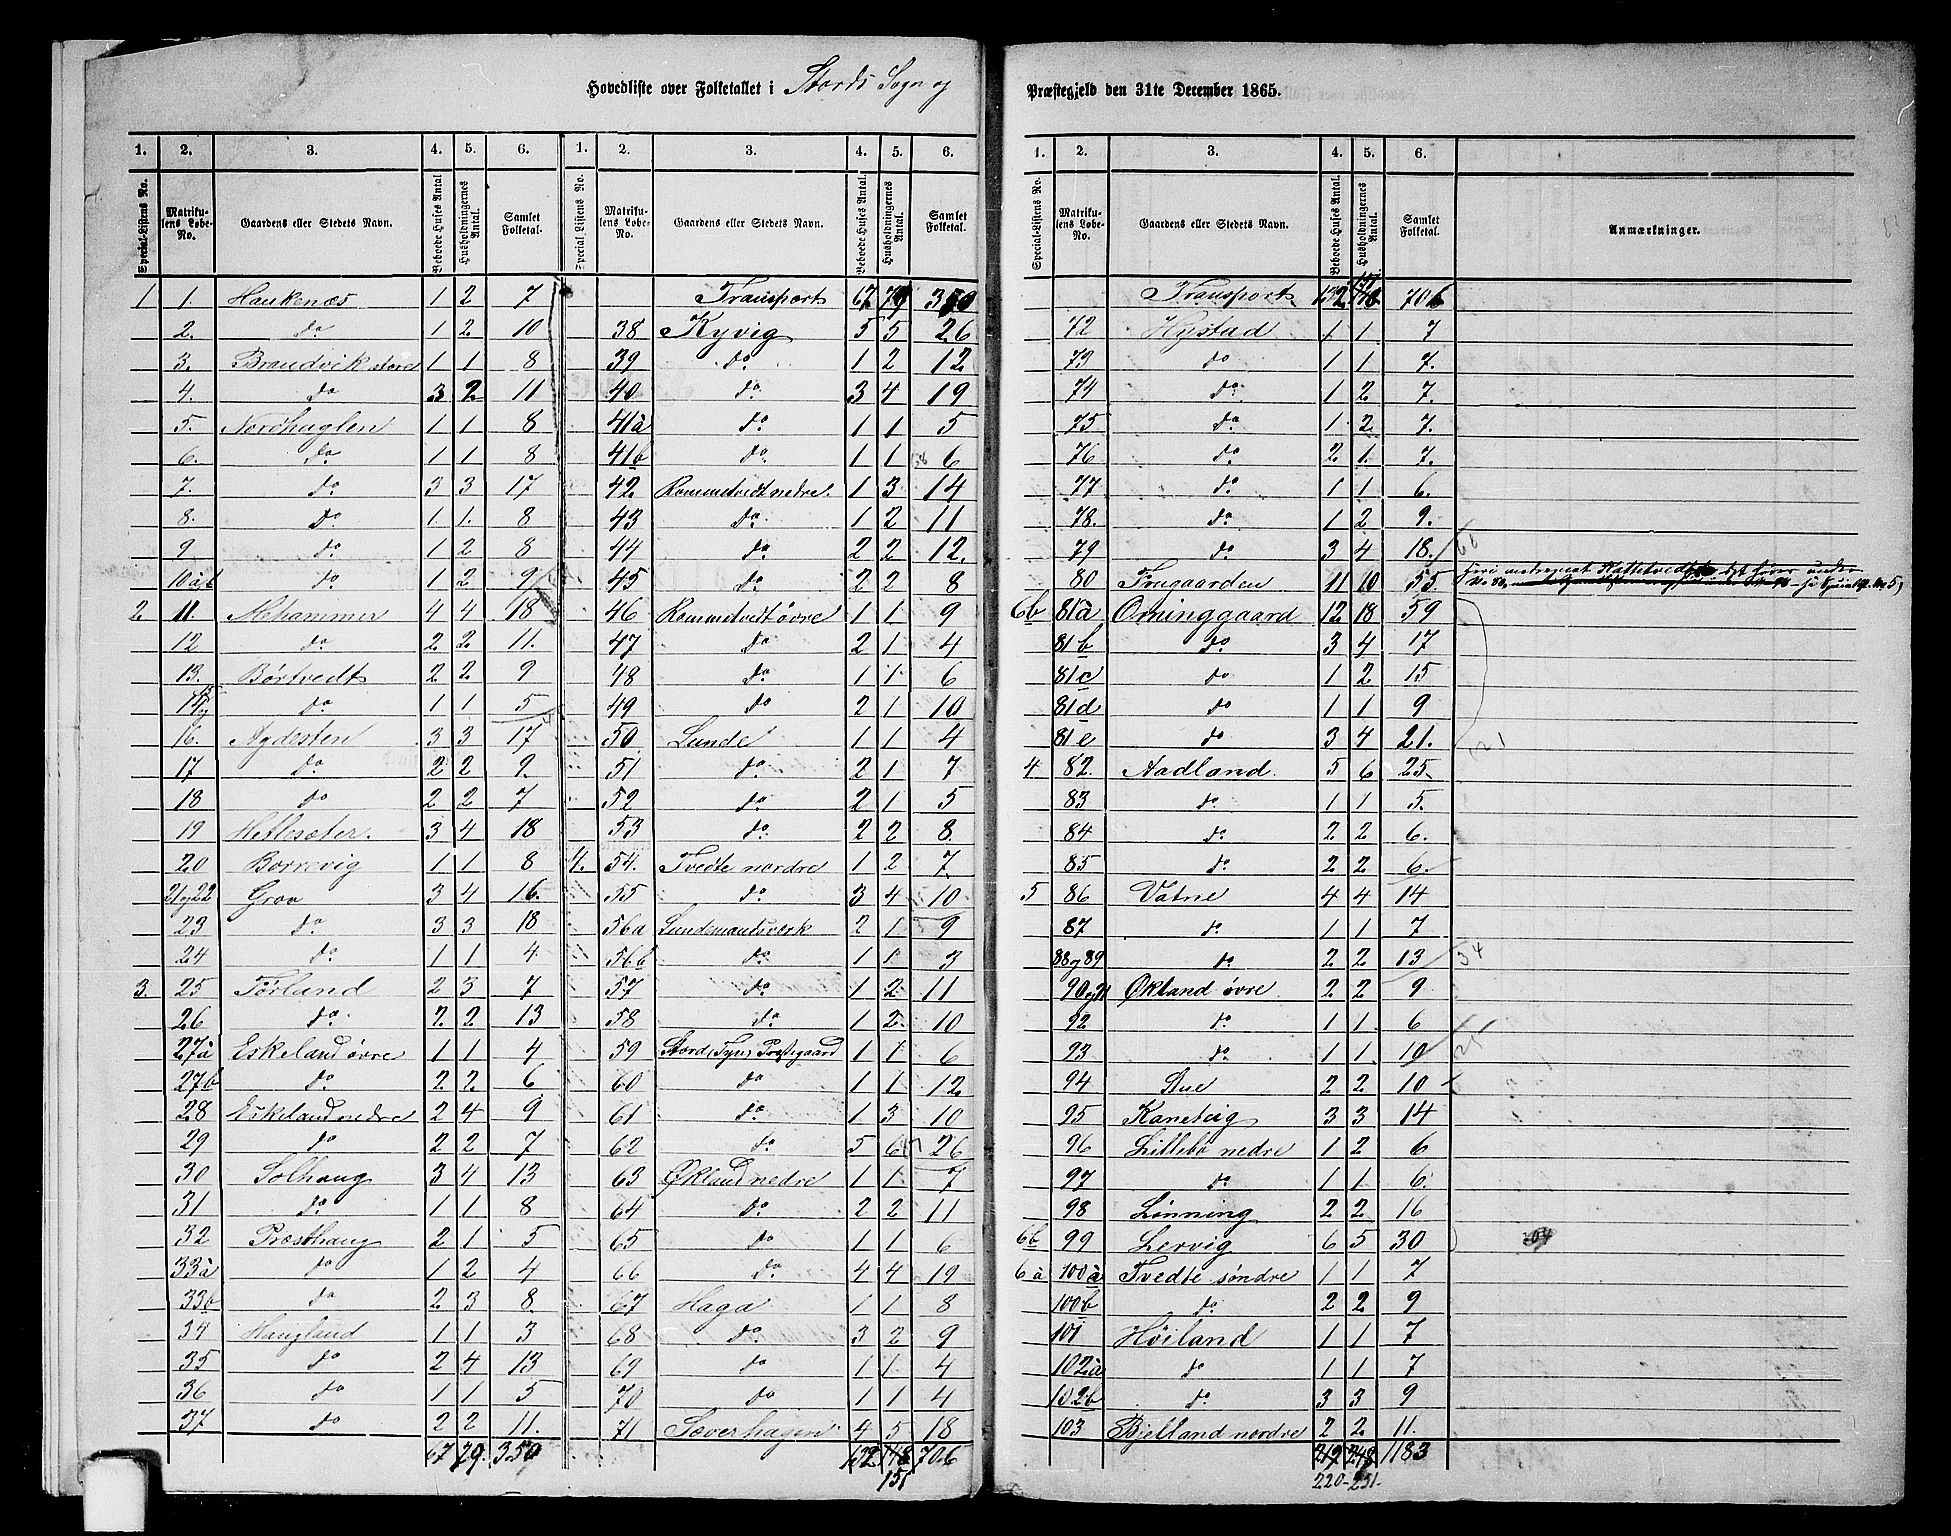 Hovedliste over Folketallet i Stords Sogn og Præstegjeld den 31te December 1865.
1. 2. 3. 4. 5. 6.
Special-Listens No. Matrikulens Løbe-No. Gaardens eller Stedets Navn. Beboede Huses Antal. Husholdningernes Antal. Samlet Folketal.
1 1. Haukenæs 1 2 7
2. do 1 2 10
3. Brandvik store 1 1 8
4. do 3 2 11
5. Nordhuglen 1 1 8
6. do 1 1 8
7. do 3 3 17
8. do 1. 1. 8
9 do 1 2 8
10a,b do 1 2 9
2. 11. Mehammer 4 4 18
12 do 2 2 11.
13. Børtvedt 2 2 9
14 og 15 do 1 1 5
16. Agdesten 3 3 17
17 do 2 2 9.
18 do 2 2 7
19 Hetlesæter. 3 4 18
20 Borrevig 1 1 8
21 og 22 Grov 3 4 16.
23 do 3 3 18
24 do 1 1 4.
3. 25 Førland 2 3 7
26 do 2 2 13
27a Eskeland øvre 1 1 4
27b do 2 2 6
28 Eskeland nedre 2 4 9
29 do 2 2 7
30 Solhaug 3 4 13
31 do 1 1 8
32 Præsthaug 2 1 5
33a do 1 2 4
33b do 2 3 8
34 Haugland 1 1 3
35 do 2 4 13
36 do 1 1 5
37 do 2 2 11.
67 79. 350
1. 2. 3. 4. 5. 6.
Special Listens No. Matrikulens Løbe-No. Gaardens eller Stedets Navn. Beboede Huses Antal. Husholdningernes Antal. Samlet Folketal.
Transport 67 79 350
38 Kyvig 5 5 26
39 do 1 2 12
40 do 3 4 19
41a do 1 1 5
41b do 1 1 6
42 Rommetvedt nedre. 1 3 14
43 do 1 2 11
44 do 2 2 12.
45 do 2 2 8
46 Rommetvedt øvre 1 1 9
47 do 2 1 4
48 do 1 1 6
49 do 2 1 10
50 Lunde 1 1 4
51 do 2 1 7
52 do 2 1 5
53 do 2 2 8
4. 54. Tvedte nordre 1 2 7
55 do 3 4 10
56a Lundemandsværk 2 1 9
56b do 1 1 3
57 do 1 2 11
58 do 1 2 10
59 Stord (Tyn) Præstegaard 1 1 6
60 do 1 1 12
61 do 1 3 10
62 do 5 6 26
63 Økland nedre 1 1 7
64 do 2 2 11
65 do 1 1 6
66 do 4 4 19
67 Haga 1 1 8
68 do 3 2 9
69 do 1 1 4
70 do 1 1 4
71 Sæverhagen 4 5 18
132 148 706
151
1. 2. 3. 4. 5. 6.
Special-Listens No. Matrikulens Løbe-No. Gaardens eller Stedets Navn. Beboede Huses Antal. Husholdningernes Antal. Samlet Folketal. Anmærkninger.
151
Transport 132 148 706
72 Hystad 1 1 7
73 do 1 1 7.
74 do 1 2 7.
75 do 1 2 7.
76 do 2 1 7.
77 do 1 1 6.
78. do 1 2 9.
79 do 3 4 18. 66
80 Frugaarden 11 10 55.
6b 81a Orninggaard 12 18 59
81b do 3 4 17
81c do 1 2 15
81d do 1 1 9
81e do 3 4 21. 121
4 82. Aadland. 5 6 25.
83 do 1 1 5.
84 do 2 2 6.
85 do 2 2 6.
5 86 Vatne 4 4 14
87 do 1 1 7
88 og 89 do 2 2 13 34
90 og 91 Økland øvre 2 2 9
92 do 1 1 6
93 do 1 1 10 25
94 Stue 2 2 10
95 Kanevig 3 3 14
96 Lillebø nedre 1 2 6
97 do 1 1 6.
98 Lønning 2 2 16
6b 99 Lervig 6 5 30
6a 100a Tvedte søndre 1 1 7
100b do 2 2 9
101 Høiland 1 1 7
102a do 1 1 7
102b do 3 3 9
103 Bjelland nordre 2 2 11.
219 248 1183
220- 251.